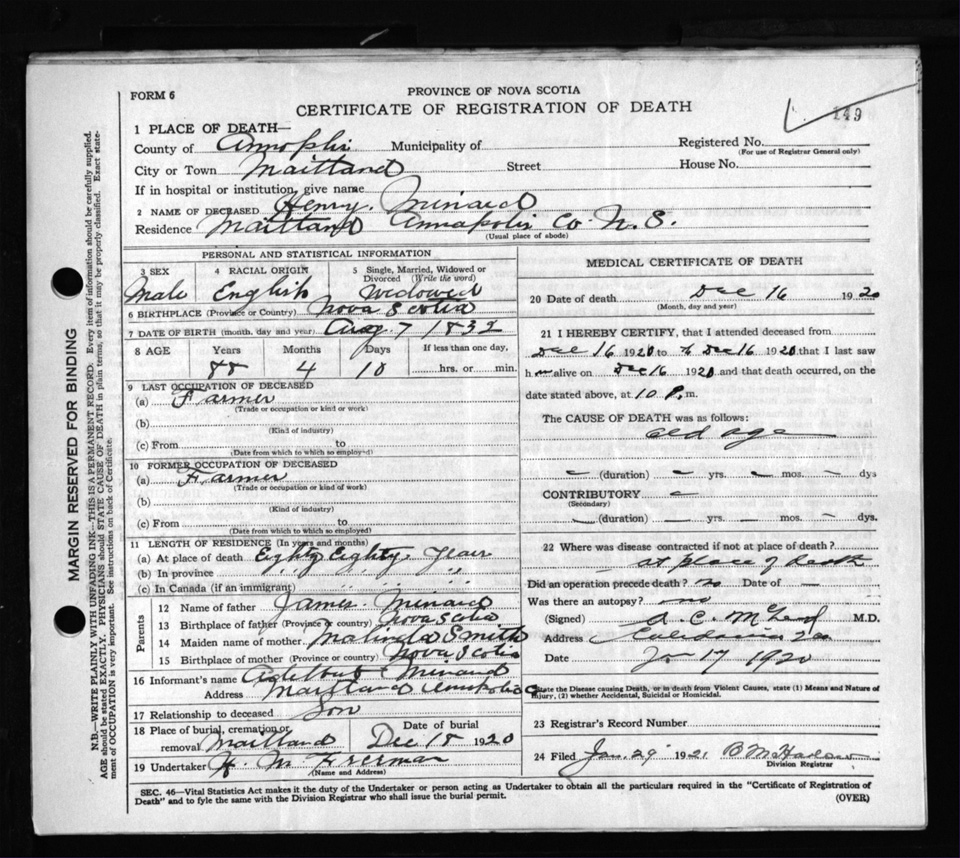 149
FORM 6
PROVINCE OF NOVA SCOTIA
CERTIFICATE OF REGISTRATION OF DEATH
1 PLACE OF DEATH—
County of Municipality of Registered No.
(For use of Registrar General only)
City or Town Maitland Street House No.
If in hospital or institution, give name
2 NAME OF DECEASED Henry Minard
Residence Maitland Annapolis Co N.S.
(Usual place of abode)
PERSONAL AND STATISTICAL INFORMATION
3 SEX 4 RACIAL ORIGIN 5 Single, Married, Widowed or Divorced (Write the word)
Male English Widowed
6 BIRTHPLACE (Province or Country) Nova Scotia
7 DATE OF BIRTH (month, day and year) Aug 7 1832
8 AGE Years Months Days If less than one day,
88 4 10 hrs. or min.
9 LAST OCCUPATION OF DECEASED
(a) Farmer
(Trade or occupation or kind or work)
(b)
(Kind of industry)
(c) From to
(Date from which to which so employed)
10 FORMER OCCUPATION OF DECEASED
(a) Farmer
(Trade or occupation or kind of work)
(b)
(Kind of industry)
(c) From to
(Date from which to which so employed)
11 LENGTH OF RESIDENCE (In years and months)
(a) At place of death Eighty Eighty Years
(b) In province " "
(c) In Canada (if an immigrant) " "
Parents
12 Name of father James Minard
13 Birthplace of father (Province or country) Nova Scotia
14 Maiden name of mother Malinda Smith
15 Birthplace of mother (Province or country) Nova Scotia
16 Informant's name Minard
Address Maitland
17 Relationship to deceased Son
18 Place of burial, cremation or removal Maitland Date of burial Dec 18 1920
19 Undertaker H. M. Freeman
(Name and Address)
MEDICAL CERTIFICATE OF DEATH
20 Date of death Dec 16 1920
(Month, day and year)
21 I HEREBY CERTIFY, that I attended deceased from
Dec 16 1920 to Dec 16 1920 that I last saw
h im alive on Dec 16 1920 and that death occurred, on the
date stated above, at 10 P. m.
The CAUSE OF DEATH was as follows:
old age
– (duration) – yrs. – mos. – dys
CONTRIBUTORY –
(Secondary)
– (duration) – yrs. – mos. – dys.
22 Where was disease contracted if not at place of death?
at place of death
Did an operation precede death? no Date of —
Was there an autopsy? no
(Signed) M.D.
Address Caledonia
Date Jan 17 1920
State the Disease causing Death, or in death from Violent Causes, state (1) Means and Nature of
Injury, (2) whether Accidental, Suicidal or Homicidal.
23 Registrar's Record Number
24 Filed Jan. 29 1921
Division Registrar
SEC. 46—Vital Statistics Act makes it the duty of the Undertaker or person acting as Undertaker to obtain all the particulars required in the "Certificate of Registration of
Death" and to fyle the same with the Division Registrar who shall issue the burial permit.
(OVER)
MARGIN RESERVED FOR BINDING
N.B.—WRITE PLAINLY WITH UNFADING INK—THIS IS A PERMANENT RECORD: Every item of information should be carefully supplied.
AGE should be stated EXACTLY. PHYSICIANS should STATE CAUSE OF DEATH in plain terms, so that it may be properly classified. Exact state-
ment of OCCUPATION is very important. See instructions on back of Certificate.